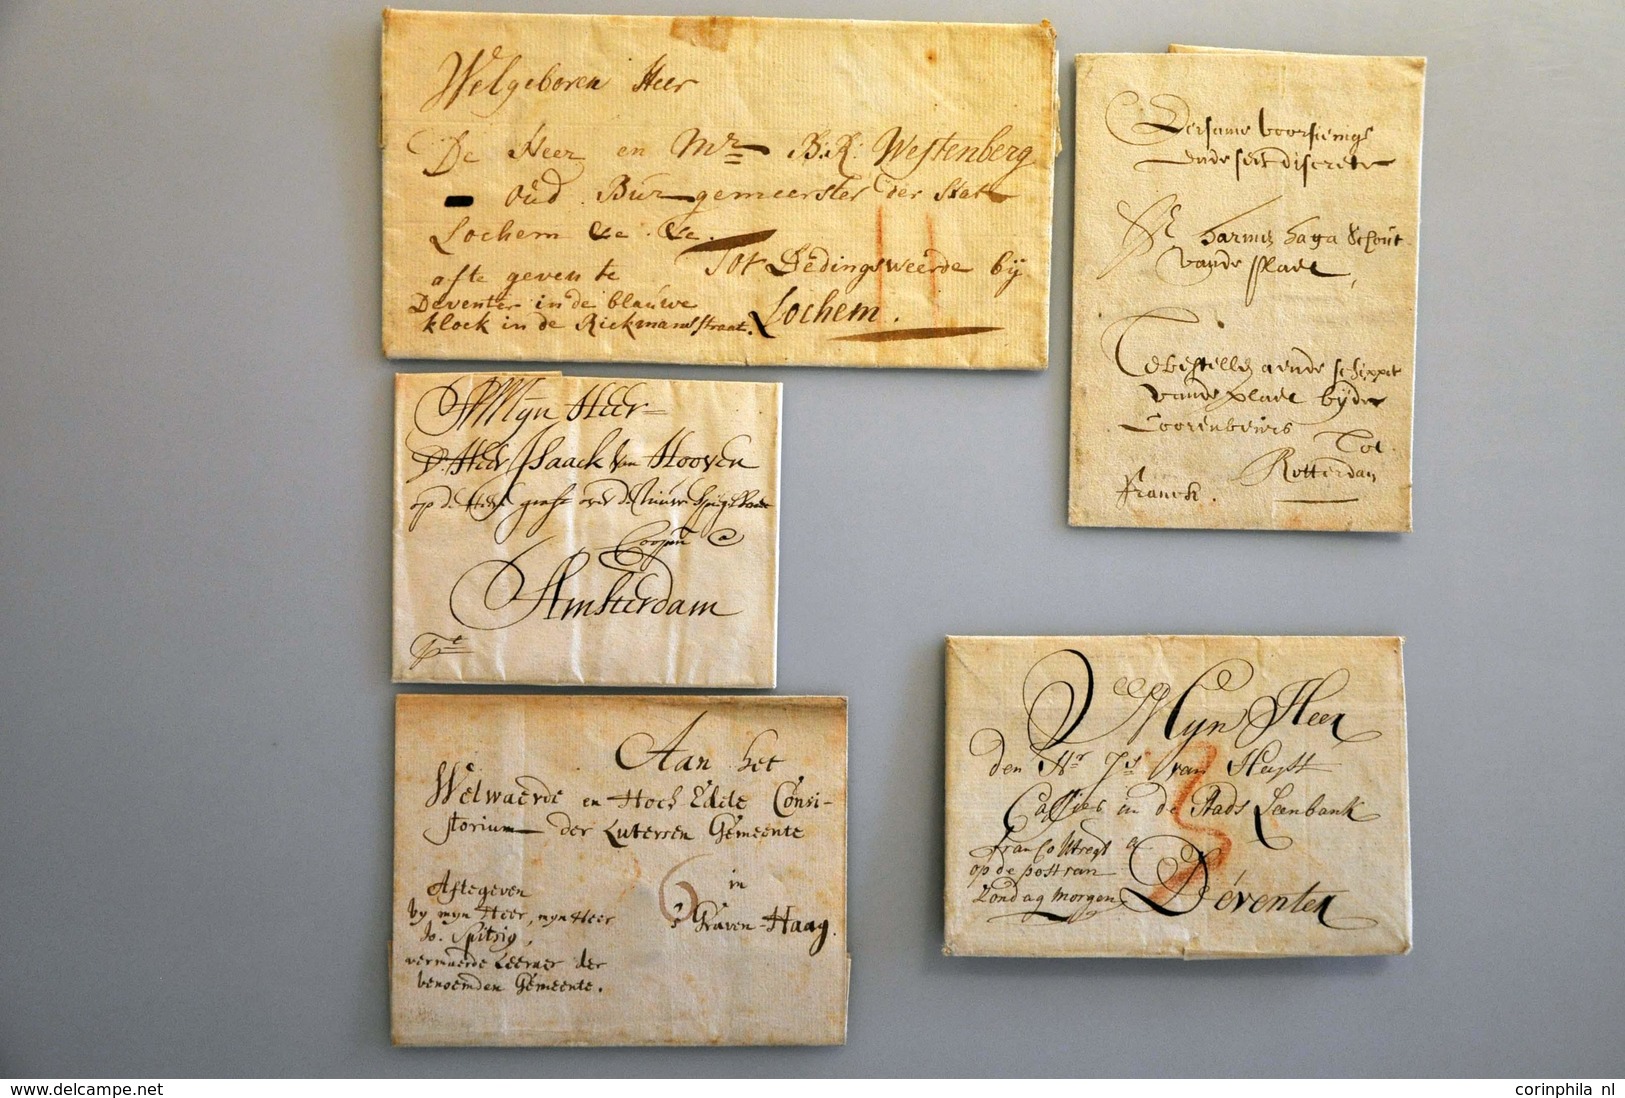 Welgeboren Heer
De Heer en Mr B:R: Westenberg
oud Burgemeerster der Stat
Lochem &c. &c.
Tot Dedingsweerde bij
Lochem.
afte geven te
Deventer in de blauwe
klock in de Rickmanstraat.
Eersame voorsienige
ende seer discrete
Harmen Haga Schout
vande
Te bestellen aende schipper
vande bijde
Coorenbeurs
Tot
Rotterdam
franck.
Mijn Heer
Dr Heer Isaack van Hooven
op de Heere graft over de Nieuwe Spiegelstraat
Coopm a
Amsterdam
Aan het
Welwaerde en Hoch Edele Consi-
storium der Lutersen Gemeente
in
s Graven-Haag.
6
Aftegeven
by myn Heer, myn Heer
Jo. Spitsig,
vermaerde Leeraer der
benoemden Gemeente.
Myn Heer
den Hr Js van Heyst
Cassier in de Stads Leenbank
a
Deventer
franco Utregt
op de post van
Zondag morgen
www.delcampe.net
corinphila nl